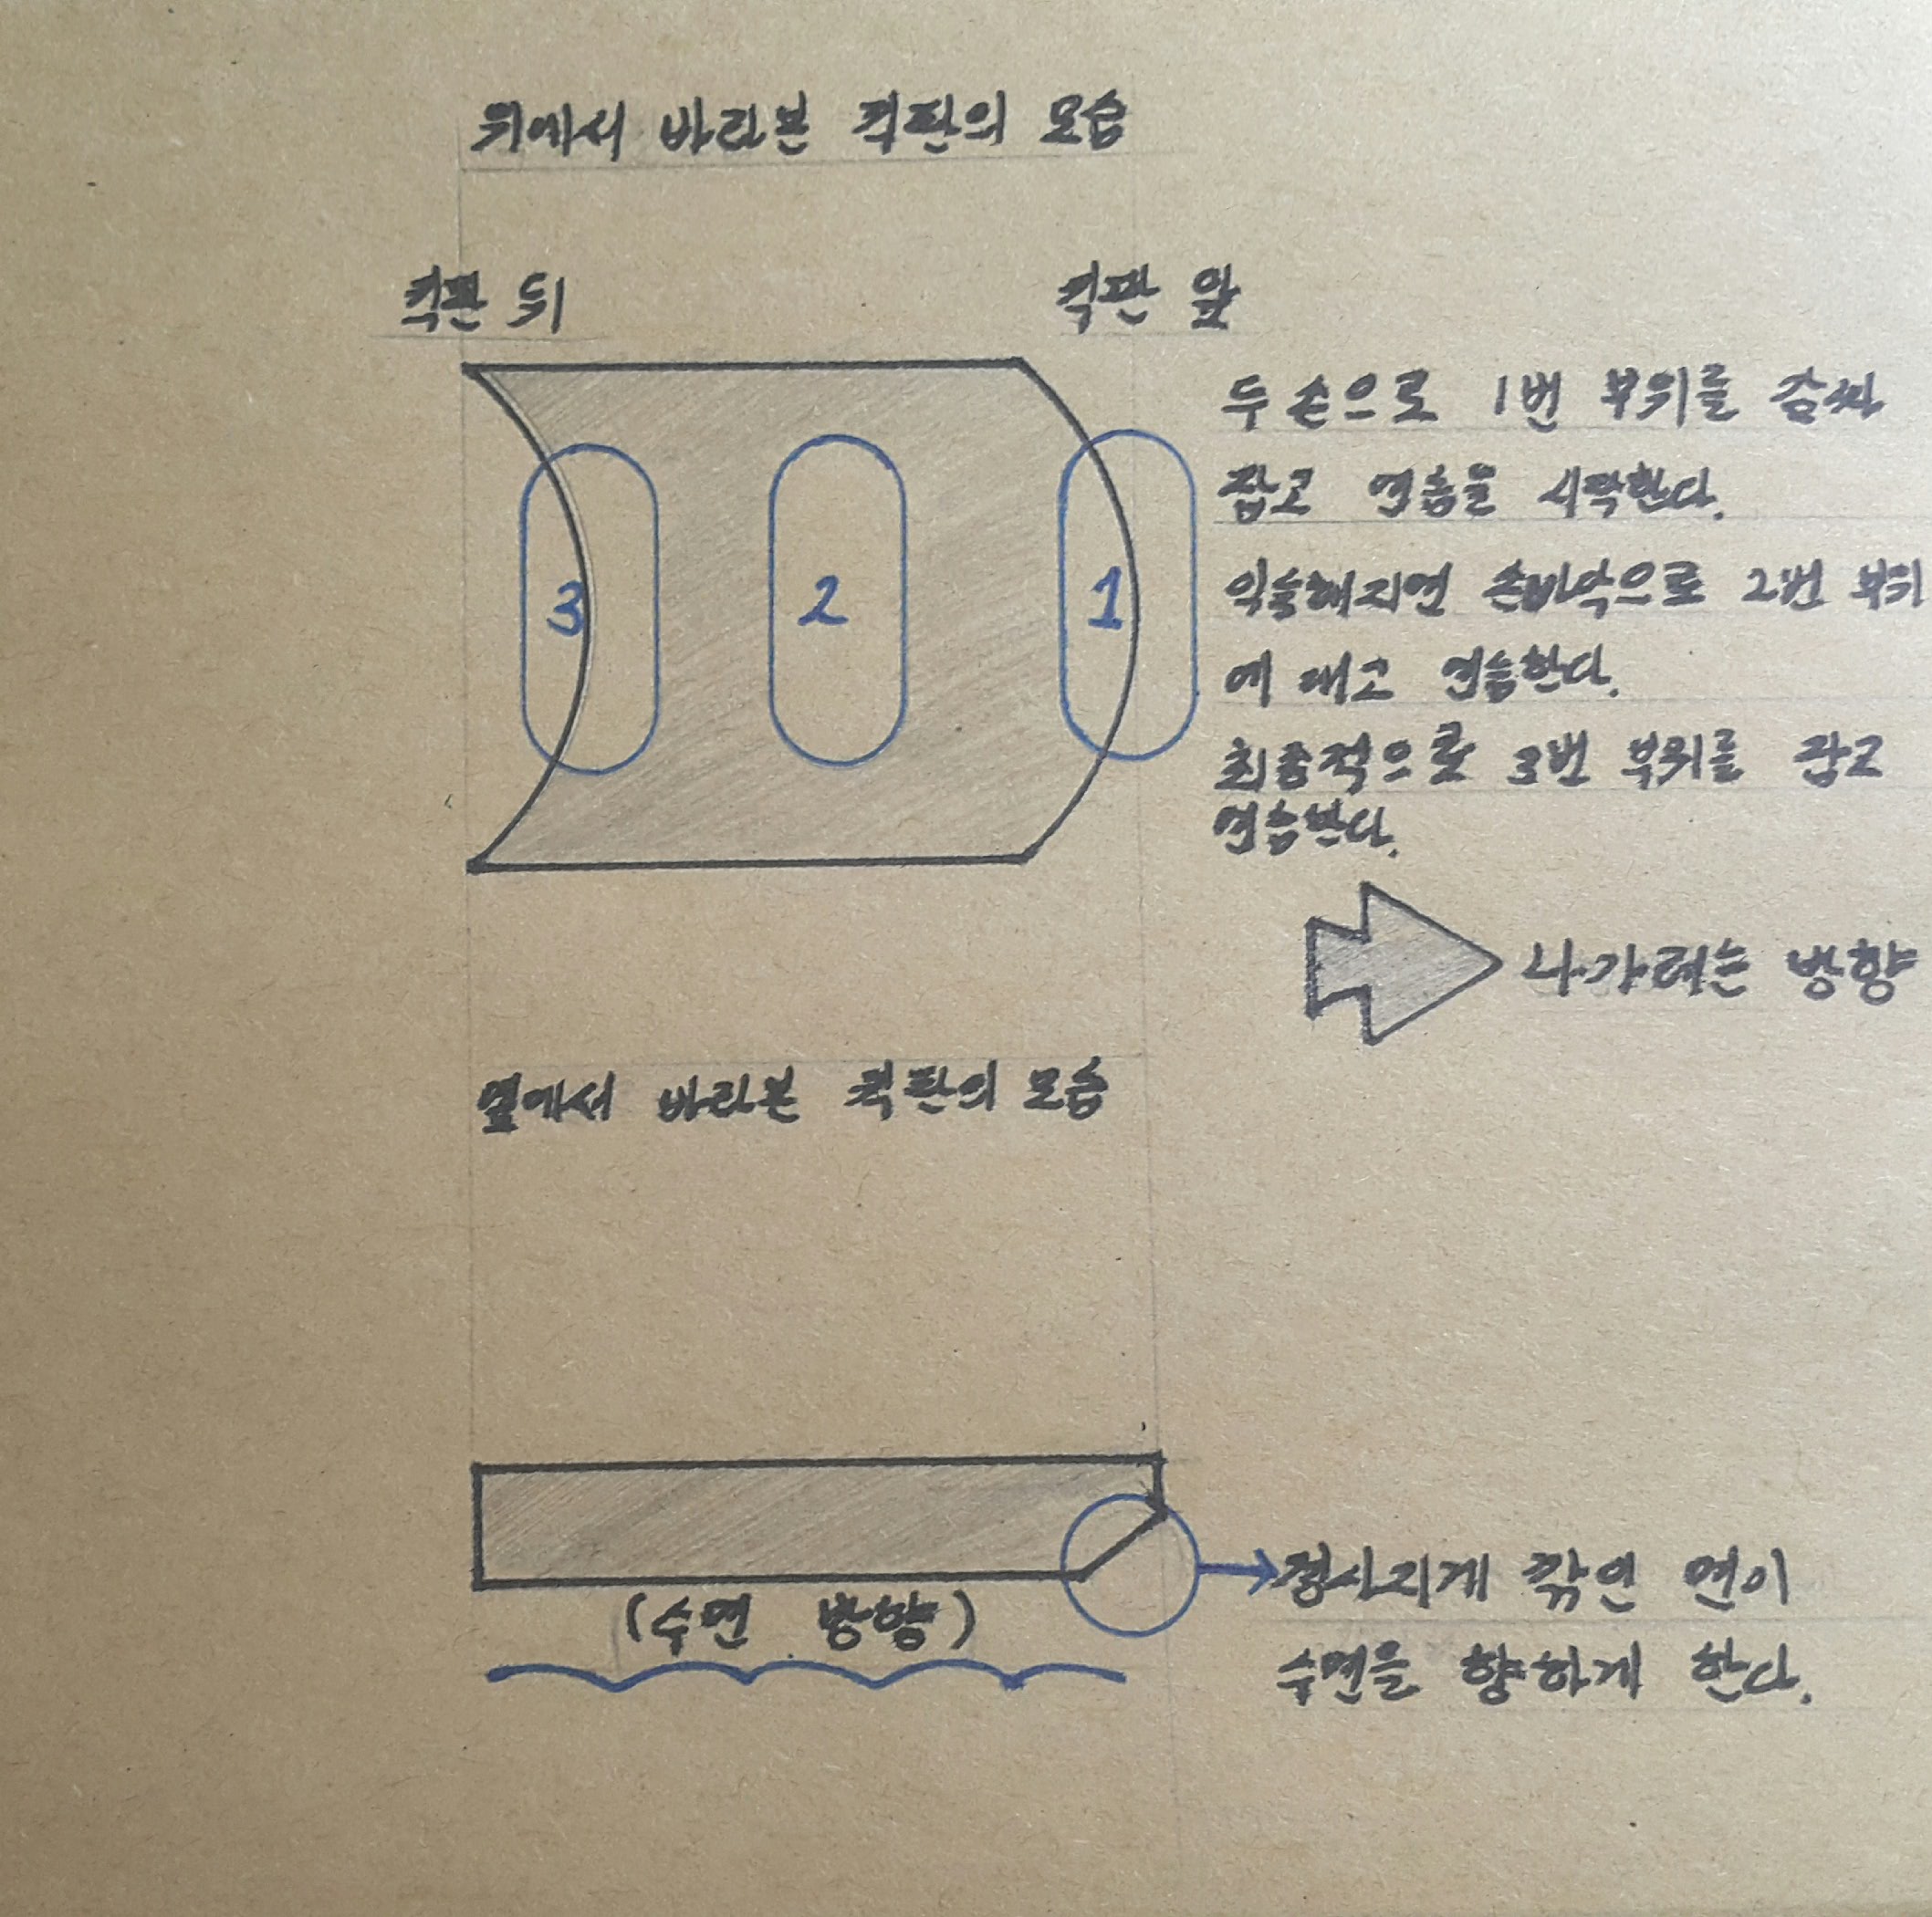 위에서 바라본 킥판의 모습
킥판 뒤
킥판 앞
두 손으로 1번 부위를 감싸
잡고 연습을 시작한다.
익숙해지면 손바닥으로 2번 부위
에 대고 연습한다.
최종적으로 3번 부위를 잡고
연습한다.
3
2
1
나가려는 방향
옆에서 바라본 킥판의 모습
(수면 방향)
경사지게 깎인 면이
수면을 향하게 한다.